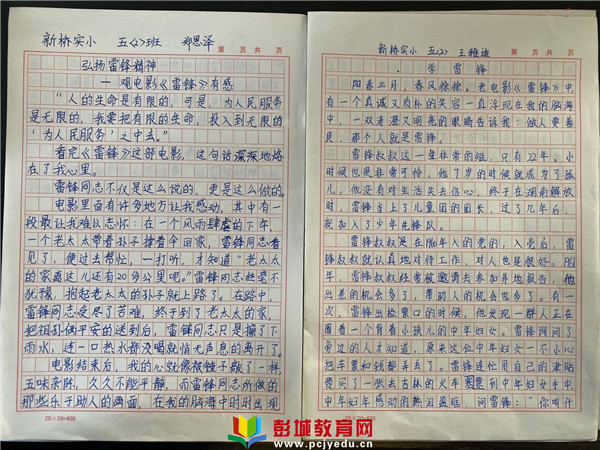 新桥实小 五〈2〉班 郑思泽
第 页 共 页
弘扬雷锋精神
—观电影《雷锋》有感
“人的生命是有限的，可是，为人民服务
是无限的，我要把有限的生命，投入到无限的
‘为人民服务’之中去。”
看完《雷锋》这部电影，这句话深深地烙
在了我心里。
雷锋同志不仅是这么说的，更是这么做的。
电影里面有许多地方让我感动，其中有一
段最让我难以忘怀：在一个风雨肆虐的下午，
一个老太太带着孙子撑着伞回家，雷锋同志看
见了，便过去帮忙，一打听，才知道“老太太
的家离这儿还有20多公里吧。”雷锋同志丝毫不
犹豫，抱起老太太的孙子就上路了。在路中，
雷锋同志受尽了苦难，终于到了老太太的家，
把祖孙俩平安的送到后，雷锋同志只是擦了下
雨水，连一口热水都没喝就悄无声息的离开了。
电影结束后，我的心就像被锥子敲了一样，
五味杂陈，久久不能平静，而雷锋同志所做的
那些乐于助人的画面，在我的脑海中时时出现
20×20=400
新桥实小 五〈2〉 王雅迪
第 页 共 页
学雷锋
阳春三月，春风徐徐。老电影《雷锋》中，
有一个真诚又质朴的笑容一直浮现在我的脑海
中，一双清澄又明亮的眼睛告诉我：做人要善
良，那个人就是雷锋。
雷锋叔叔这一生非常的短，只有22年。小
时候也是非常可怜，他7岁的时候就成为了孤
儿，他没有对生活失去信心，终于在湖南解放
时，雷锋当上了儿童团的团长，过了几年后，
就加入了少年先锋队。
雷锋叔叔是在1960年入的党的，入党后，雷
锋叔叔就认真地对待工作，对人也是很好。
雷锋叔叔经常被邀请去参加外地报告，他
出差的机会多了，帮助人的机会也多了。有一
次，雷锋出检票口的时候，他发现一群人正在
围着一个背着小孩儿的中年妇女，雷锋询问了
旁边的人才知道，原来这位中年妇女一不小心
把车票和钱都弄丢了。雷锋连忙用自己的津贴
费买了一张去吉林的火车票塞到中年妇女手中，
中年妇女感动的热泪盈眶，问雷锋：“你叫什
20×20=400
彭城教育网
www.pcjyedu.cn